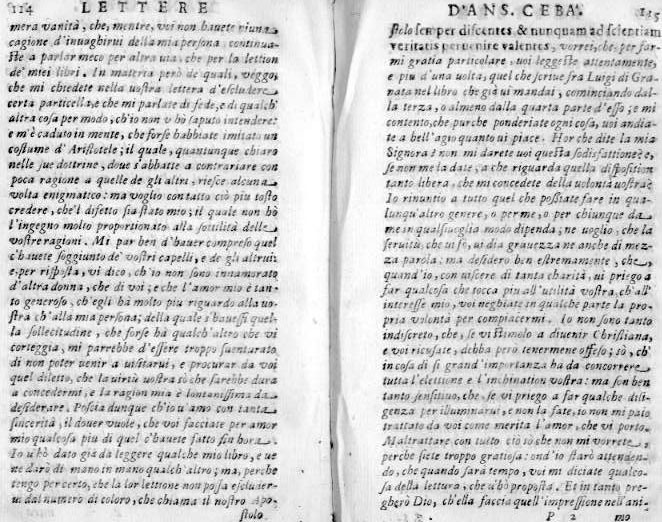 124 LETTERE
mera vanità, che, mentre, voi non hauete niuna
cagione d'inuaghirui della mia persona, continua-
ste a parlar meco per altra uia, che per la lettion
de' miei libri. In materia però de' quali, veggo,
che mi chiedete nella vostra lettera d'escludere
certa particella, e che mi parlate di fede, e di qualch'
altra cosa per modo, ch'io non v'hò saputo intendere:
e m'è caduto in mente, che forse habbiate imitato un
costume d'Aristotele; il quale, quantunque chiaro
nelle sue dottrine, doue s'abbatte a contrariare con
poca ragione a quelle de gli altri, riesce alcuna
volta enigmatico: ma voglio con tutto ciò più tosto
credere, che'l difetto sia stato mio; il quale non hò
l'ingegno molto proportionato alla sottilità delle
vostre ragioni. Mi par ben d'hauer compreso quel
c'hauete soggiunto de' vostri capelli, e de gli altrui:
e, per risposta, vi dico, ch'io non sono innamorato
d'altra donna, che di voi; e che l'amor mio è tan-
to generoso, ch'egli hà molto più riguardo alla uo-
stra ch'alla mia persona; della quale s'hauessi quel-
la sollecitudine, che forse hà qualch'altro che vi
corteggia, mi parrebbe d'essere troppo suenturato
di non poter uenir a uisitarui, e procurar da voi
quel diletto, che la uirtù uostra sò che sarebbe dura
a concedermi, e la ragion mia è lontanissima da
desiderare. Poscia dunque ch'io u'amo con tanta
sincerità, il douer vuole, che voi facciate per amor
mio qualcosa più di quel c'hauete fatto sin hora.
Io u'hò dato già da leggere qualche mio libro, e ue
ne darò di mano in mano qualch'altro; ma, perche
tengo per certo, che la lor lettione non possa escluder-
ui dal numero di coloro, che chiama il nostro Apo-
stolo
D'ANS. CEBA. 115
stolo semper discentes & nunquam ad scientiam
veritatis peruenire valentes, vorrei, che, per far-
mi gratia particolare, uoi leggeste attentamente,
e più d'una uolta, quel che scriue fra Luigi di Gra-
nata nel libro che già ui mandai, cominciando dal-
la terza, o almeno dalla quarta parte d'esso; e mi
contento, che purche ponderiate ogni cosa, uoi andia-
te a bell'agio quanto ui piace. Hor che dite la mia
Signora? non mi darete uoi questa sodisfattione?
se non me la date, a che riguarda quella dispositione
tanto libera, che mi concedete della volontà uostra?
Io rinuntio a tutto quel che possiate fare in qua-
lunqu'altro genere, o per me, o per chiunque da
me in qualsiuoglia modo dipenda; ne uoglio, che la
seruitù, che ui fò, ui dia grauezza ne anche di mez-
za parola: ma desidero ben estremamente, che,
quand'io, con uiscere di tanta charità, ui priego a
far qualcosa che tocca più all'utilità vostra, ch'all'
interesse mio, voi neghiate in qualche parte la pro-
pria volontà per compiacermi. Io non sono tanto
indiscreto, che, se vi stimolo a diuenir Christiana,
e voi ricusate, debba però tenermene offeso; sò, ch'
in cosa di sì grand'importanza hà da concorrere
tutta l'elettione e l'inchination uostra: ma son ben
tanto sensitiuo, che, se vi priego a far qualche dili-
genza per illuminarui, e non la fate, io non mi paio
trattato da voi come merita l'amor, che vi porto.
Maltrattare con tutto ciò sò che non mi vorrete,
perche siete troppo gratiosa: ond'io starò attenden-
do, che quando sarà tempo, voi mi diciate qualco-
sa della lettura, che u'hò proposta. Et in tanto pre-
gherò Dio, ch'ella faccia quell'impressione nell'ani-
P 2 mo